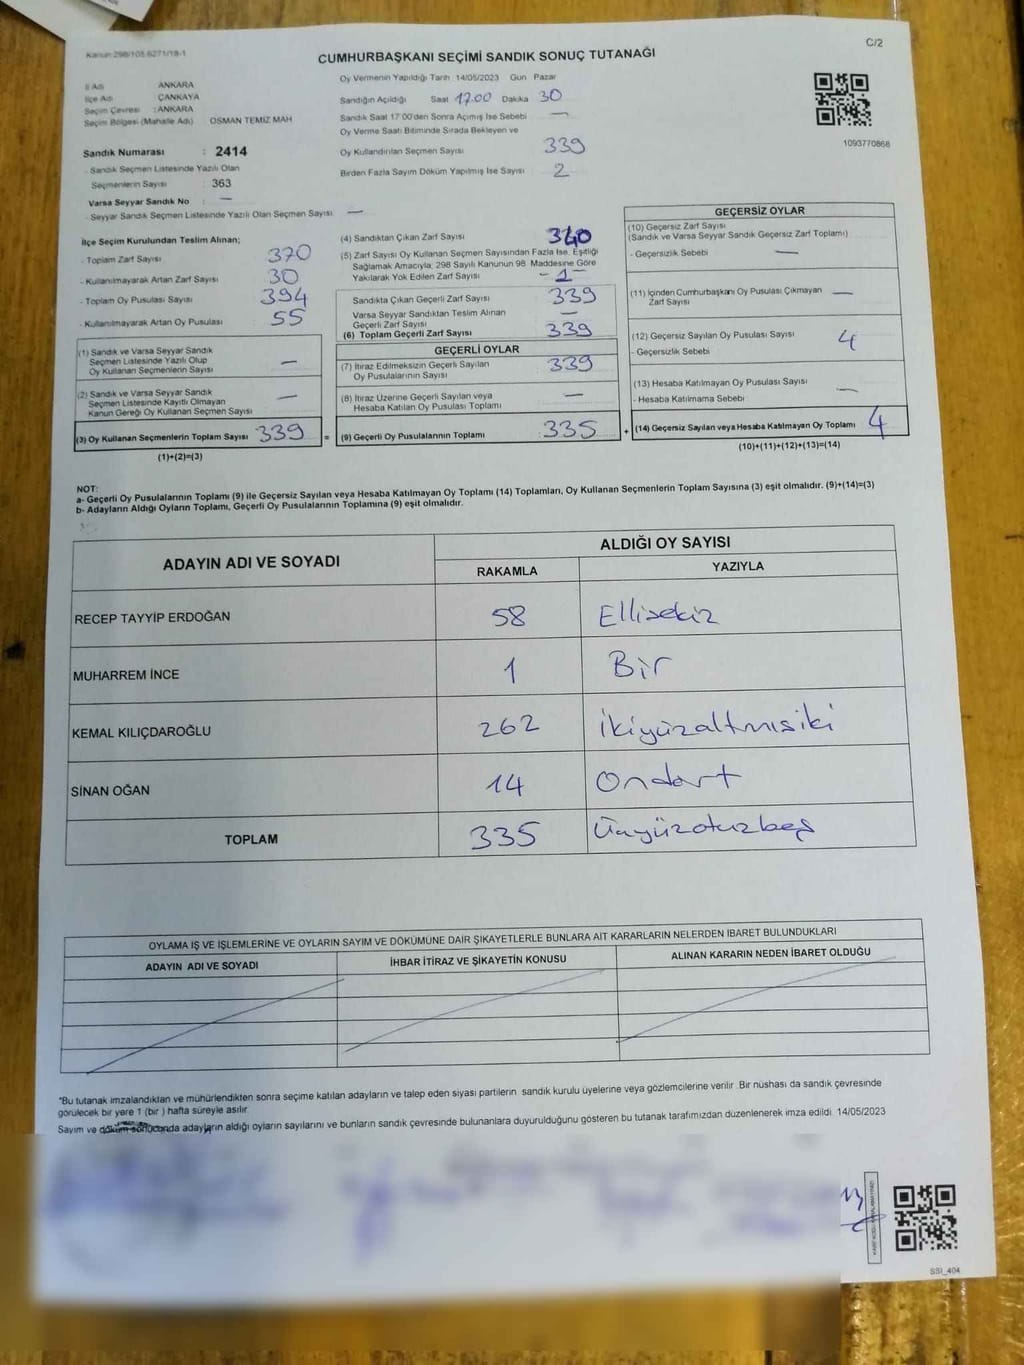 Kanun 298/105 6271/18-1
C/2
CUMHURBAŞKANI SEÇİMİ SANDIK SONUÇ TUTANAĞI
İl Adı ANKARA
İlçe Adı ÇANKAYA
Seçim Çevresi : ANKARA
Seçim Bölgesi (Mahalle Adı) OSMAN TEMİZ MAH
Sandık Numarası : 2414
- Sandık Seçmen Listesinde Yazılı Olan
Seçmenlerin Sayısı : 363
Varsa Seyyar Sandık No : —
- Seyyar Sandık Seçmen Listesinde Yazılı Olan Seçmen Sayısı —
Oy Vermenin Yapıldığı Tarih 14/05/2023 Gün Pazar
Sandığın Açıldığı Saat 17.00 Dakika 30
Sandık Saat 17:00'den Sonra Açımış İse Sebebi —
Oy Verme Saati Bitiminde Sırada Bekleyen ve
Oy Kullandırılan Seçmen Sayısı 339
Birden Fazla Sayım Döküm Yapılmış İse Sayısı 2
1093770868
İlçe Seçim Kurulundan Teslim Alınan;
- Toplam Zarf Sayısı 370
- Kullanılmayarak Artan Zarf Sayısı 30
- Toplam Oy Pusulası Sayısı 394
- Kullanılmayarak Artan Oy Pusulası 55
(1) Sandık ve Varsa Seyyar Sandık
Seçmen Listesinde Yazılı Olup
Oy Kullanan Seçmenlerin Sayısı —
(2) Sandık ve Varsa Seyyar Sandık
Seçmen Listesinde Kayıtlı Olmayan
Kanun Gereği Oy Kullanan Seçmen Sayısı —
(3) Oy Kullanan Seçmenlerin Toplam Sayısı 339 =
(1)+(2)=(3)
(4) Sandıktan Çıkan Zarf Sayısı 340
(5) Zarf Sayısı Oy Kullanan Seçmen Sayısından Fazla İse, Eşitliği
Sağlamak Amacıyla, 298 Sayılı Kanunun 98. Maddesine Göre
Yakılarak Yok Edilen Zarf Sayısı -1-
Sandıkta Çıkan Geçerli Zarf Sayısı 339
Varsa Seyyar Sandıktan Teslim Alınan
Geçerli Zarf Sayısı —
(6) Toplam Geçerli Zarf Sayısı 339
GEÇERLİ OYLAR
(7) İtiraz Edilmeksizin Geçerli Sayılan
Oy Pusulalarının Sayısı 339
(8) İtiraz Üzerine Geçerli Sayılan veya
Hesaba Katılan Oy Pusulası Toplamı —
(9) Geçerli Oy Pusulalarının Toplamı 335 +
GEÇERSİZ OYLAR
(10) Geçersiz Zarf Sayısı
(Sandık ve Varsa Seyyar Sandık Geçersiz Zarf Toplamı)
- Geçersizlik Sebebi —
(11) İçinden Cumhurbaşkanı Oy Pusulası Çıkmayan
Zarf Sayısı —
(12) Geçersiz Sayılan Oy Pusulası Sayısı 4
- Geçersizlik Sebebi
(13) Hesaba Katılmayan Oy Pusulası Sayısı —
- Hesaba Katılmama Sebebi
(14) Geçersiz Sayılan veya Hesaba Katılmayan Oy Toplamı 4
(10)+(11)+(12)+(13)=(14)
NOT:
a- Geçerli Oy Pusulalarının Toplamı (9) ile Geçersiz Sayılan veya Hesaba Katılmayan Oy Toplamı (14) Toplamları, Oy Kullanan Seçmenlerin Toplam Sayısına (3) eşit olmalıdır. (9)+(14)=(3)
b- Adayların Aldığı Oyların Toplamı, Geçerli Oy Pusulalarının Toplamına (9) eşit olmalıdır.
ADAYIN ADI VE SOYADI
ALDIĞI OY SAYISI
RAKAMLA YAZIYLA
RECEP TAYYİP ERDOĞAN 58 Ellisekiz
MUHARREM İNCE 1 Bir
KEMAL KILIÇDAROĞLU 262 İkiyüzaltmışiki
SİNAN OĞAN 14 Ondört
TOPLAM 335 Üçyüzotuzbeş
OYLAMA İŞ VE İŞLEMLERİNE VE OYLARIN SAYIM VE DÖKÜMÜNE DAİR ŞİKAYETLERLE BUNLARA AİT KARARLARIN NELERDEN İBARET BULUNDUKLARI
ADAYIN ADI VE SOYADI İHBAR İTİRAZ VE ŞİKAYETİN KONUSU ALINAN KARARIN NEDEN İBARET OLDUĞU
"Bu tutanak imzalandıktan ve mühürlendikten sonra seçime katılan adayların ve talep eden siyasi partilerin sandık kurulu üyelerine veya gözlemcilerine verilir. Bir nüshası da sandık çevresinde
görülecek bir yere 1 (bir ) hafta süreyle asılır.
Sayım ve döküm sonucunda adayların aldığı oyların sayılarını ve bunların sandık çevresinde bulunanlara duyurulduğunu gösteren bu tutanak tarafımızdan düzenlenerek imza edildi. 14/05/2023
SSI_404